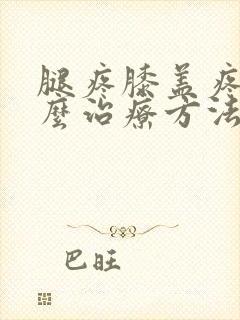 腿疼膝盖疼
麼治疗方法
巴旺